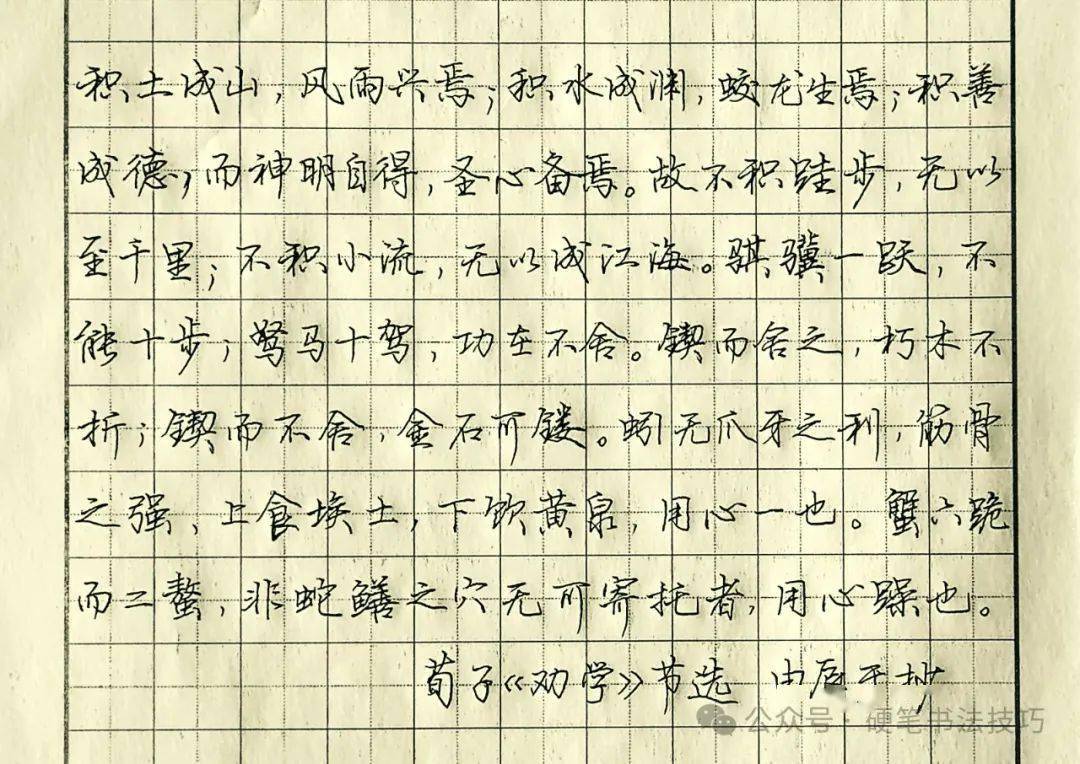 积土成山，风雨兴焉；积水成渊，蛟龙生焉；积善
成德，而神明自得，圣心备焉。故不积跬步，无以
至千里；不积小流，无以成江海。骐骥一跃，不
能十步；驽马十驾，功在不舍。锲而舍之，朽木不
折；锲而不舍，金石可镂。蚓无爪牙之利，筋骨
之强，上食埃土，下饮黄泉，用心一也。蟹六跪
而二螯，非蛇鳝之穴无可寄托者，用心躁也。
荀子《劝学》节选 抄
公众号·硬笔书法技巧